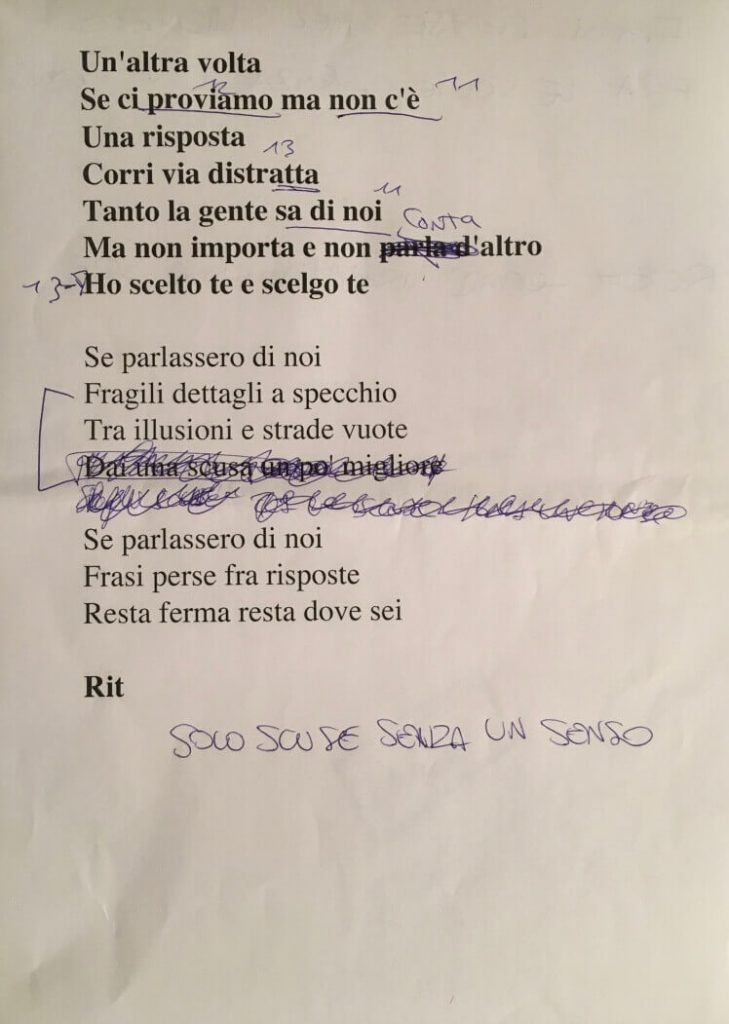 Un'altra volta
13 11
Se ci proviamo ma non c'è
Una risposta
13
Corri via distratta
11
Tanto la gente sa di noi
CONTA
Ma non importa e non parla d'altro
13-
Ho scelto te e scelgo te
Se parlassero di noi
Fragili dettagli a specchio
Tra illusioni e strade vuote
Dai una scusa un po' migliore
Se parlassero di noi
Frasi perse fra risposte
Resta ferma resta dove sei
Rit
SOLO SCUSE SENZA UN SENSO